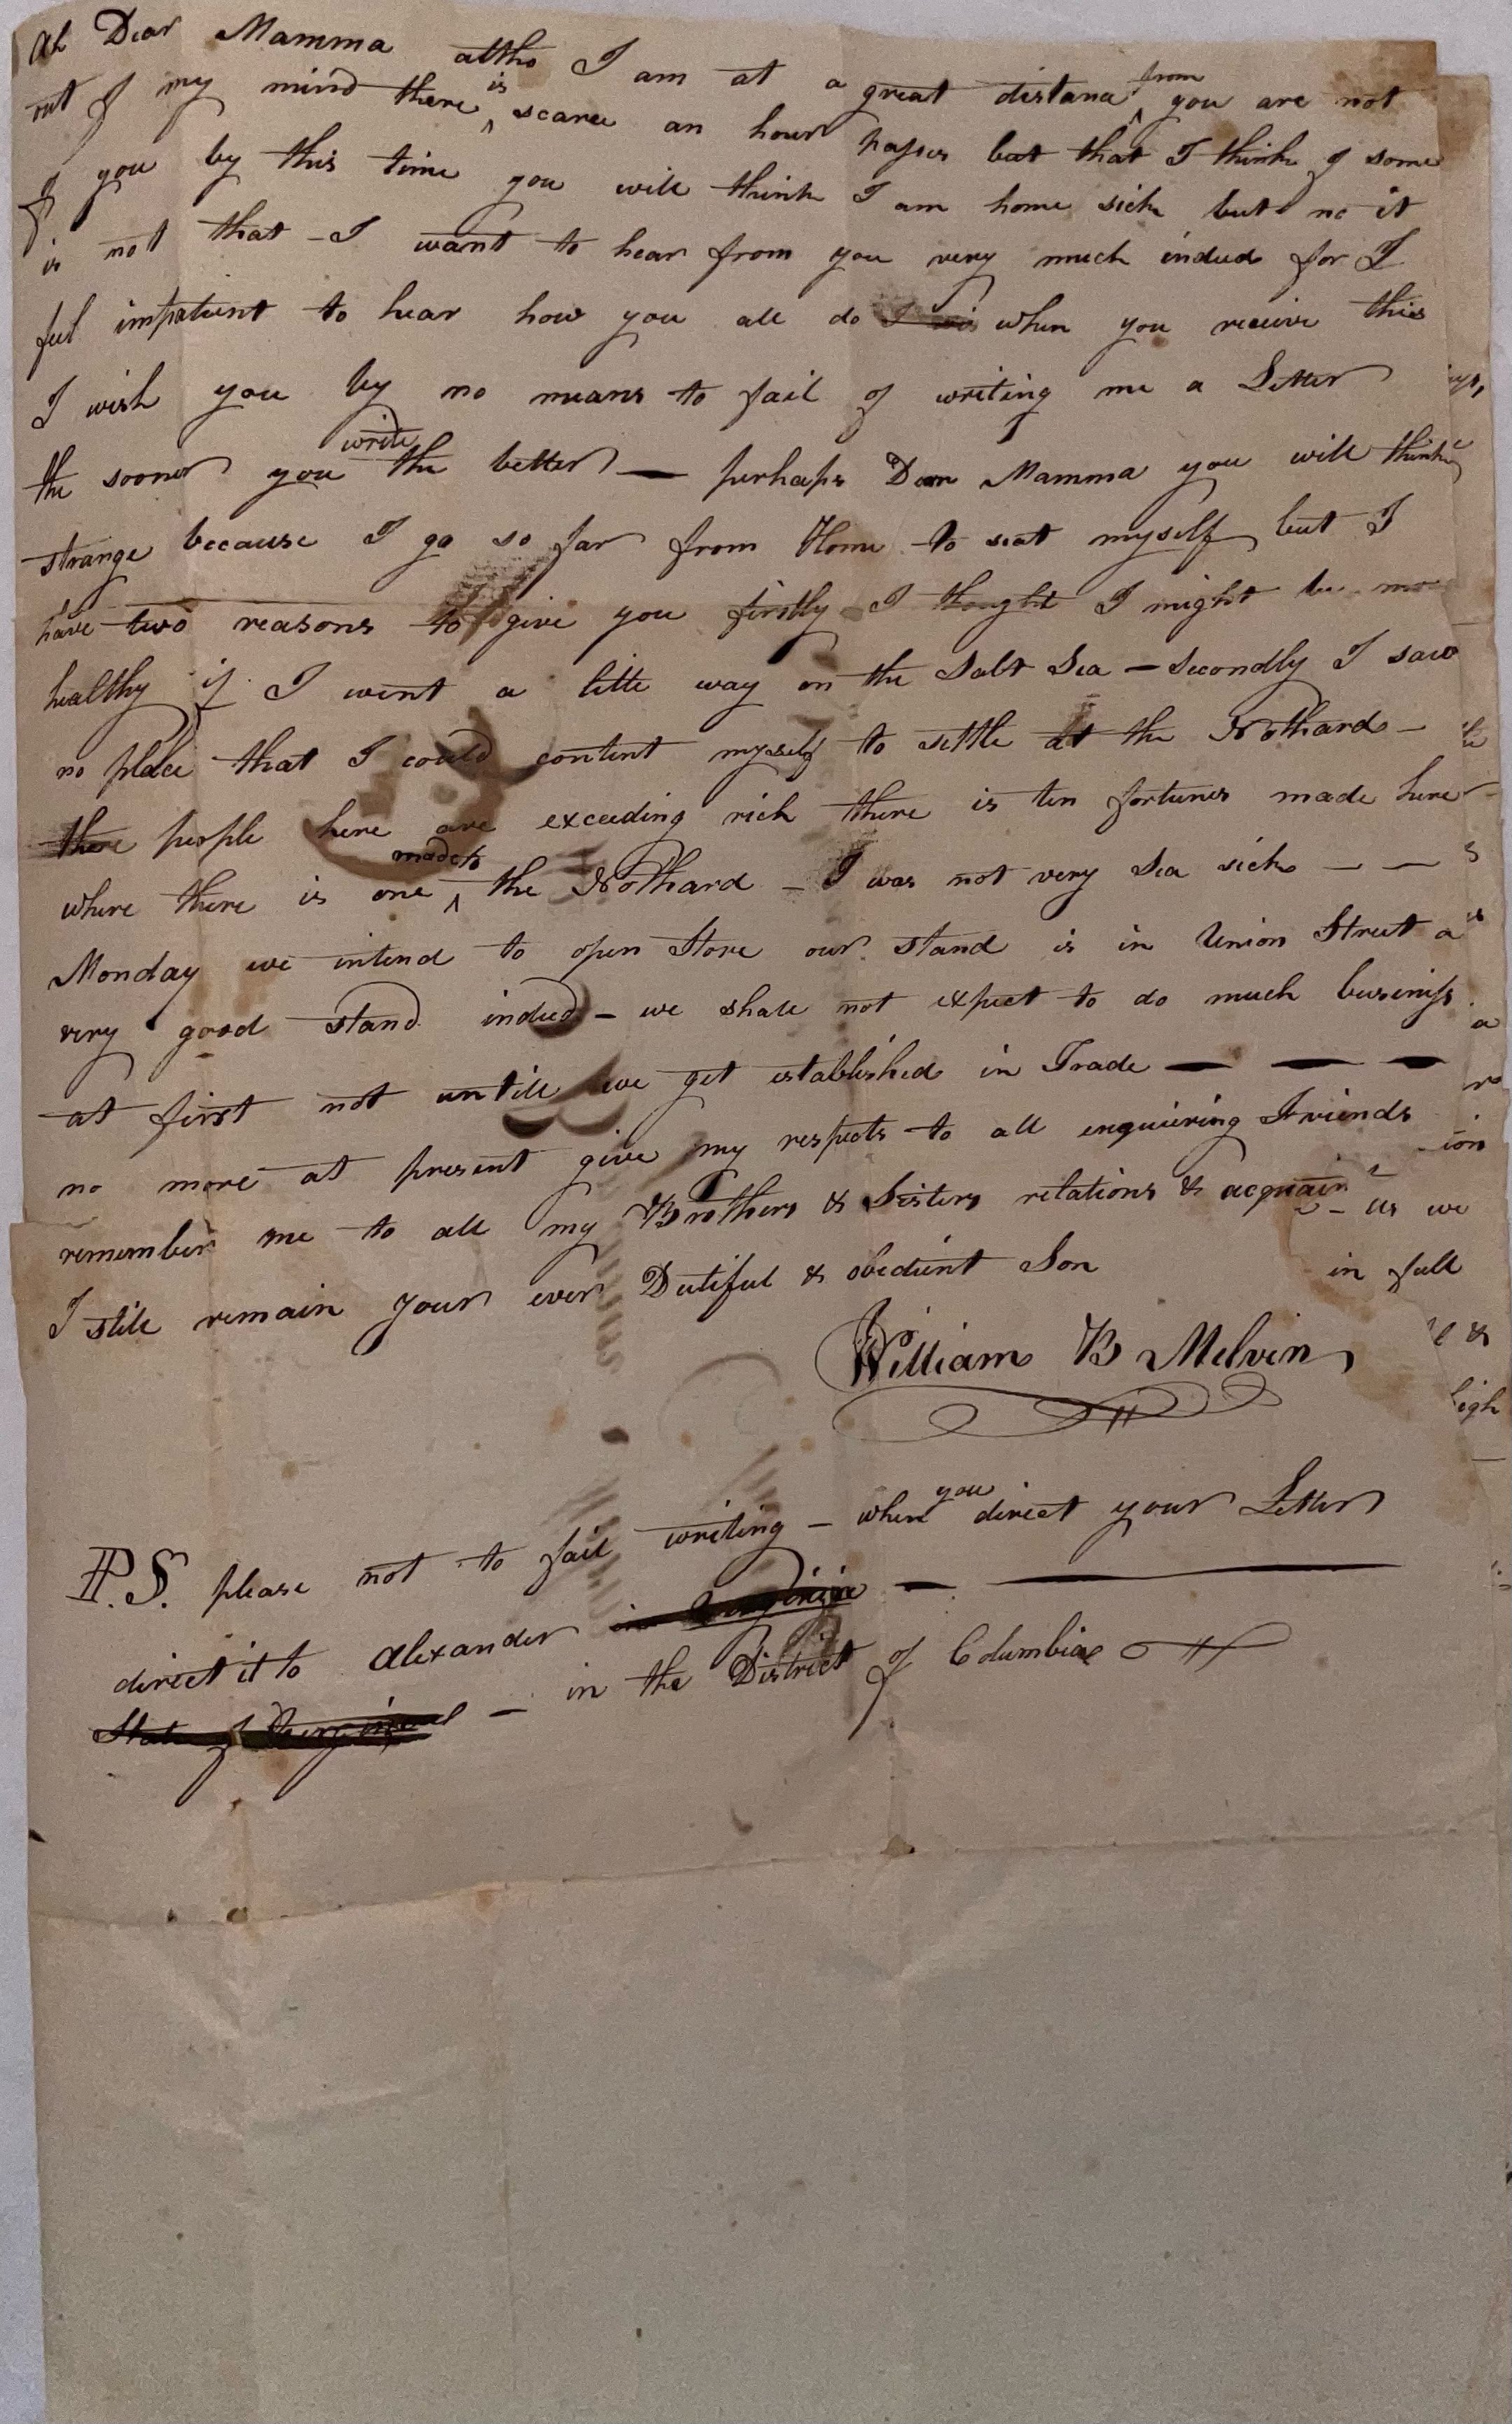 Ah Dear Mamma altho I am at a great distance from you are not
out of my mind there is scarce an hour passes but that I think of some
of you by this time you will think I am home sick but no it
is not that - I want to hear from you very much indeed for I
feel impatient to hear how you all do when you receive this
I wish you by no means to fail of writing me a Letter
the sooner you write the better — perhaps Dear Mamma you will think
strange because I go so far from Home to seat myself but I
have two reasons to give you firstly I thought I might be more
healthy if I went a little way on the Salt Sea – Secondly I saw
no place that I could content myself to settle at the Nothard –
there people here are exceeding rich there is ten fortunes made here
where there is one made to the Nothard – I was not very Sea sick – –
Monday we intend to open Store our stand is in Union Street a
very good stand indeed – we shall not expect to do much business
at first not untill we get established in Trade — — —
no more at present give my respects to all enquiering Friends
remember me to all my Brothers & Sisters relations & acquain – as we
I still remain your ever Dutiful & obedient Son in full
William B Melvin
P.S. please not to fail writing – when you direct your Letter
direct it to Alexander in Virginia — ———
State of Virginia – in the District of Columbia